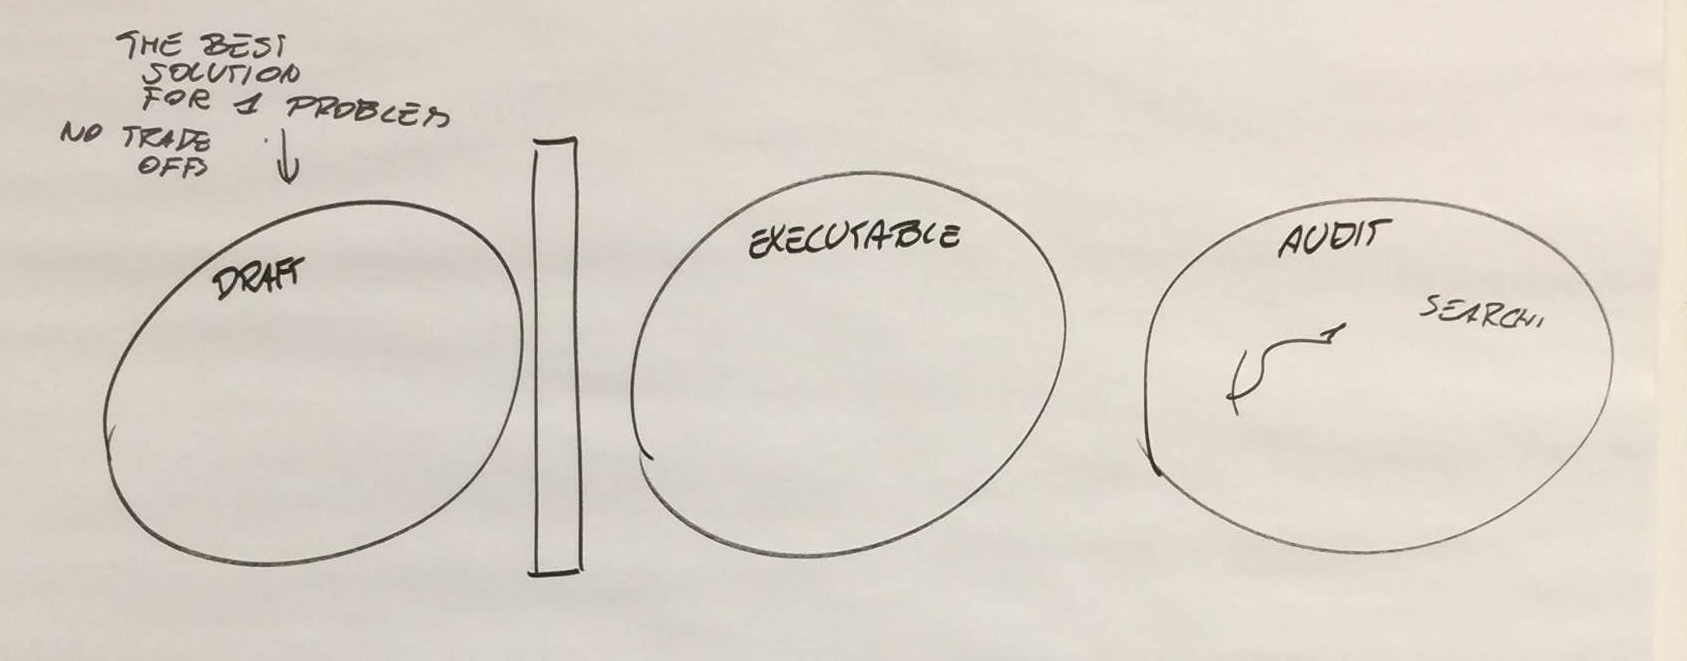 THE BEST
SOLUTION
FOR 1 PROBLEM
NO TRADE
OFFS
DRAFT
EXECUTABLE
AUDIT
SEARCH